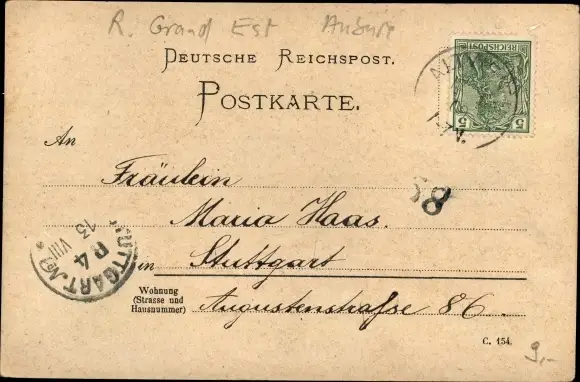 R. Grand Est Aubure
DEUTSCHE REICHSPOST.
POSTKARTE.
REICHSPOST
5 5
An
Fräulein
Maria Haas.
88
in Stuttgart
STUTTGART. No
13 VIII
Wohnung
(Strasse und
Hausnummer)
Augustenstraße 86.
C. 154.
9,-